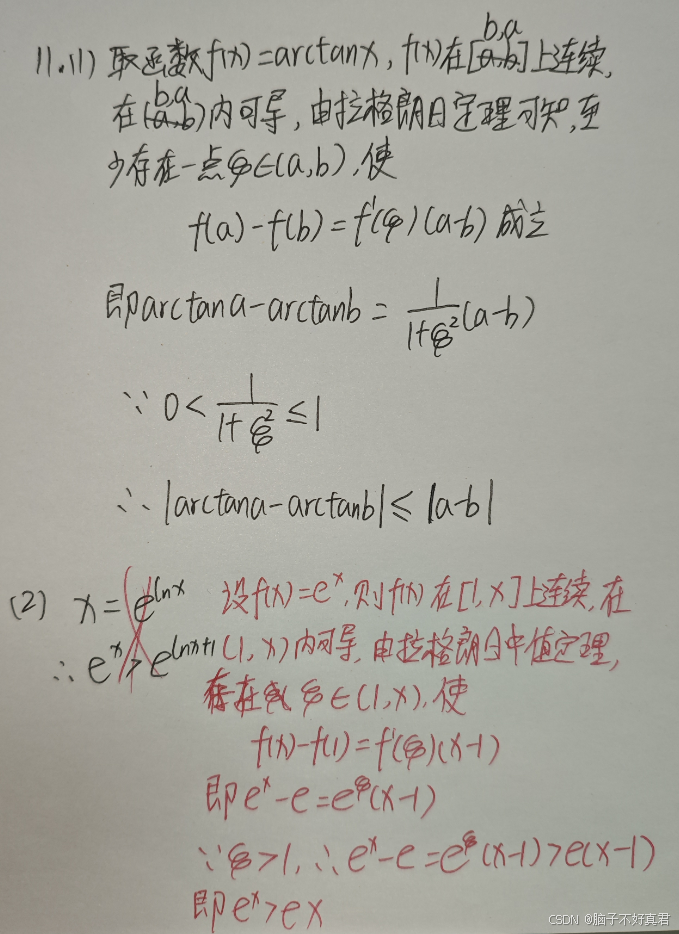 11.(1) 取函数f(x)=arctanx, f(x)在[b,a]上连续,
在(b,a)内可导, 由拉格朗日定理可知, 至
少存在一点ξ∈(a,b), 使
f(a)-f(b)=f'(ξ)(a-b) 成立
即arctana-arctanb=1/(1+ξ²)(a-b)
∵ 0<1/(1+ξ²)≤1
∴ |arctana-arctanb|≤|a-b|
(2) x=e^{lnx} 设f(x)=e^x, 则f(x)在[1,x]上连续, 在
∴e^x>e^{lnx+1} (1,x)内可导, 由拉格朗日中值定理,
存在 ξ∈(1,x), 使
f(x)-f(1)=f'(ξ)(x-1)
即e^x-e=e^ξ(x-1)
∵ξ>1, ∴e^x-e=e^ξ(x-1)>e(x-1)
即e^x>ex
CSDN @脑子不好真君